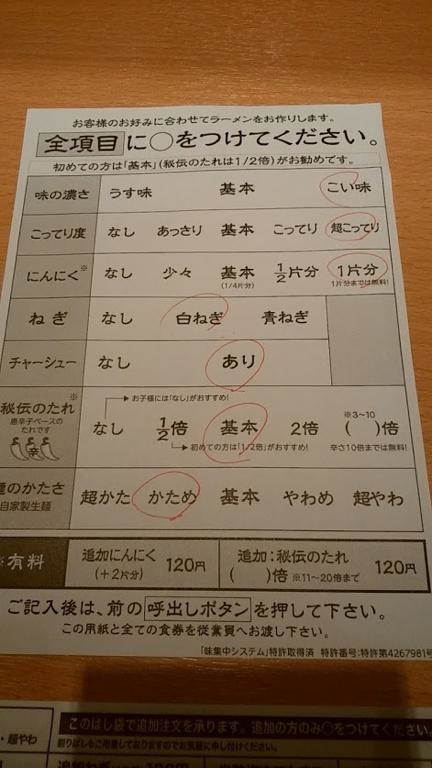 お客様のお好みに合わせてラーメンをお作りします。
全項目に○をつけてください。
初めての方は「基本」(秘伝のたれは1/2倍)がお勧めです。
味の濃さ うす味 基本 こい味
こってり度 なし あっさり 基本 こってり 超こってり
にんにく※ なし 少々 基本 1/2片分 1片分
(1/4片分) 1片分までは無料!
ねぎ なし 白ねぎ 青ねぎ
チャーシュー なし あり
お子様には「なし」がおすすめ!
秘伝のたれ※ なし 1/2倍 基本 2倍 ※3~10 ( )倍
唐辛子ベースの
たれです
辛
初めての方は「1/2倍」がおすすめ! 辛さ10倍までは無料!
のかたさ 超かた かため 基本 やわめ 超やわ
自家製生麺
※有料 追加にんにく (+2片分) 120円 追加:秘伝のたれ ( )倍 ※11~20倍まで 120円
ご記入後は、前の呼出しボタンを押して下さい。
この用紙と全ての食券を従業員へお渡し下さい。
「味集中システム」特許取得済 特許番号:特許第4267981号
・超やわ このはし袋で追加注文を承ります。追加の方のみ○をつけてください。
割りばしもご用意しておりますのでお気軽に申し付けください。